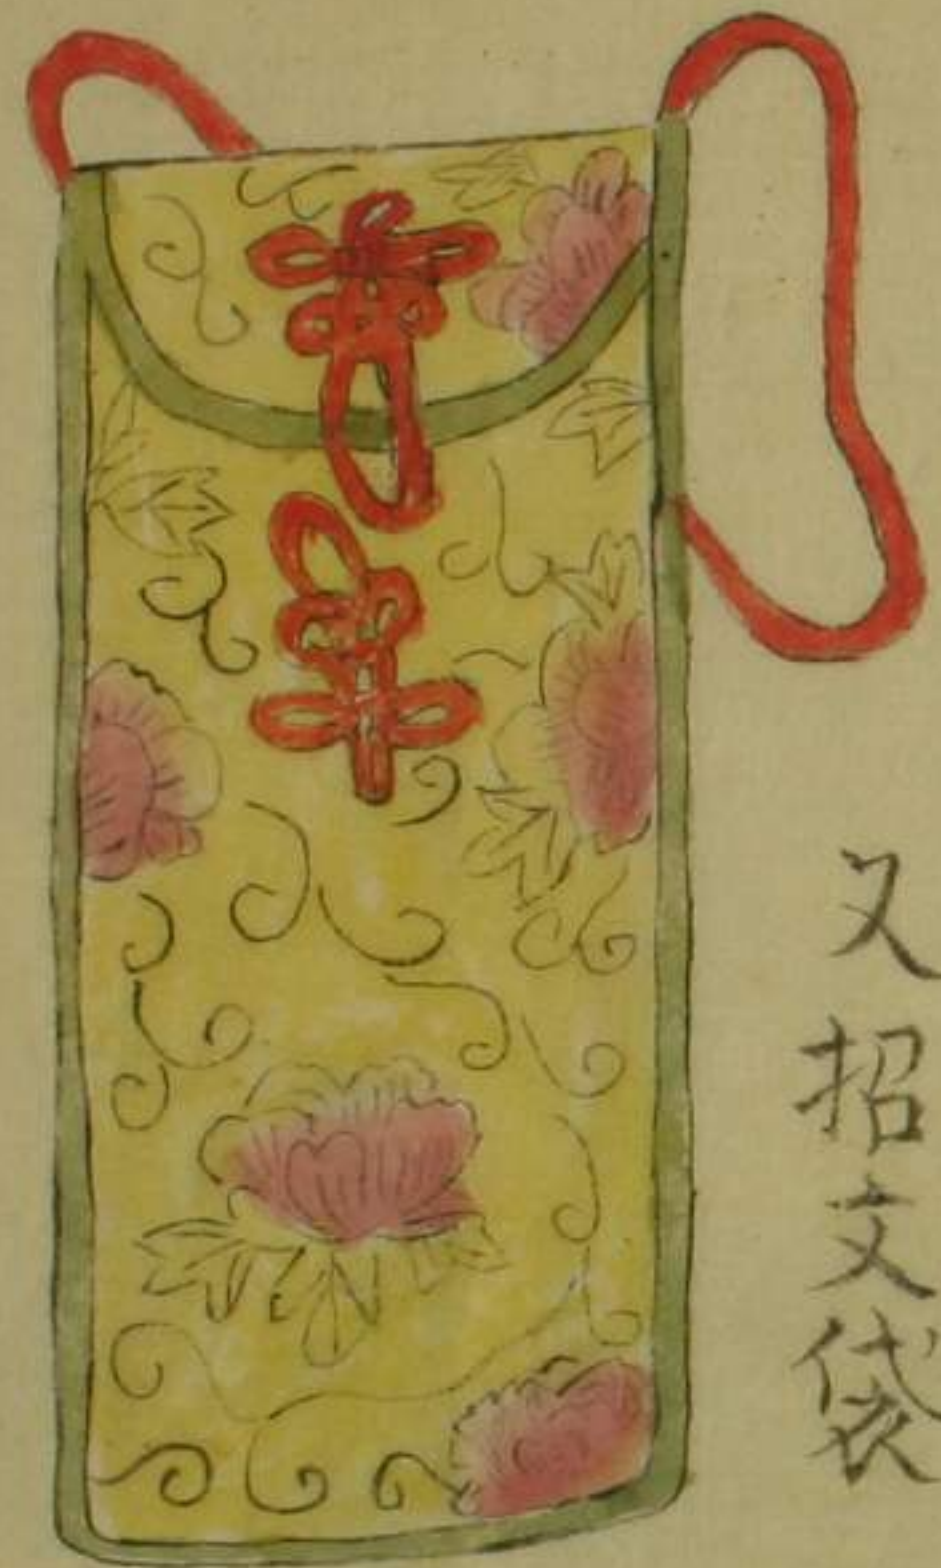 又招文袋